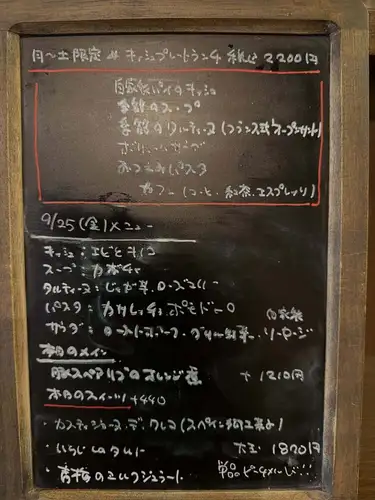 月〜土限定 キッシュプレートランチ 税込 2200円
自家製パイのキッシュ
季節のスープ
季節のタルティーヌ(フランス式オープンサンド)
ボリュームサラダ
おつまみパスタ
カフェ(コーヒー、紅茶、エスプレッソ)
9/25(金)メニュー
キッシュ:エビとキノコ
スープ:カボチャ
タルティーヌ:じゃが芋、ローズマリー
パスタ:カサレッチェ、ポモドーロ
サラダ:ローストビーフ、グリル野菜、自家製ソーセージ
本日のメイン
豚スペアリブのオレンジ煮 +1210円
本日のスイーツ +440
・カスティージョ・デ・クレマ(スペイン
・いちじくのタルト 1870円
・青梅のミルクジェラート